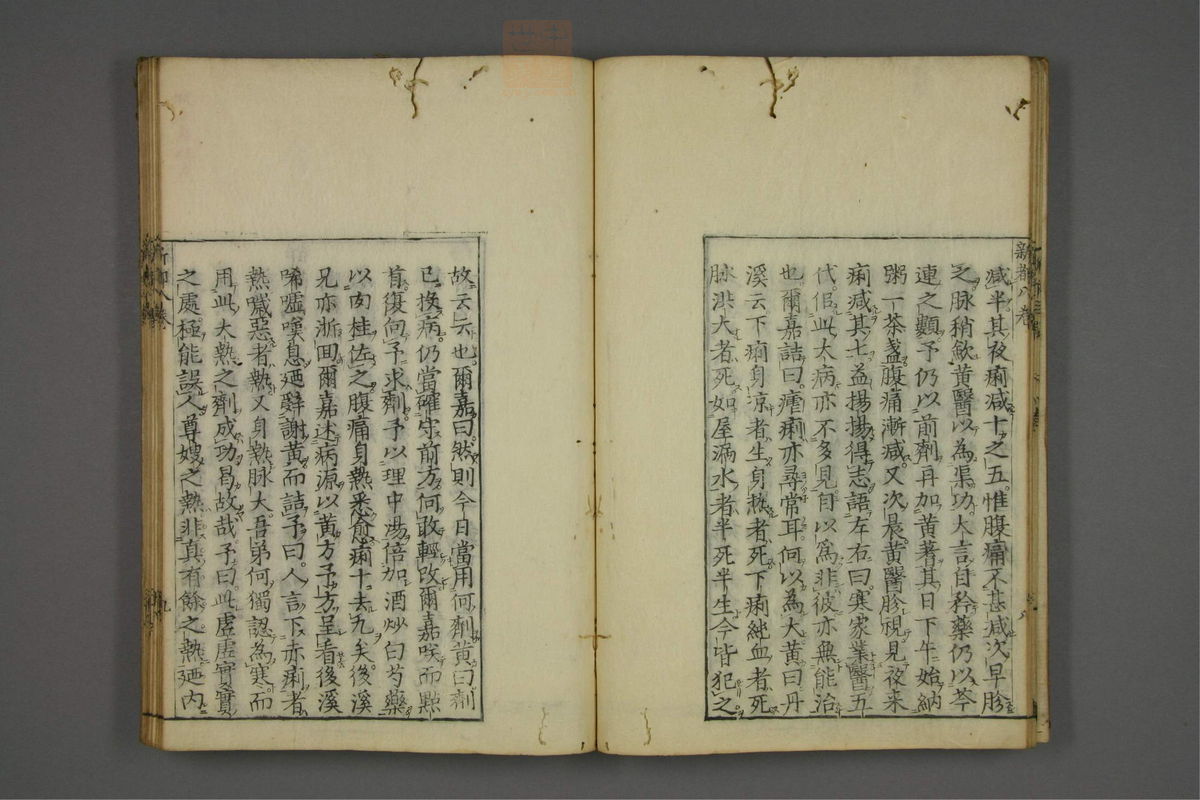 減半其夜痢減十之五惟腹痛不甚減次早胗
之脉稍歛黄醫以為渠功大言自矜藥仍以芩
連之顴予仍以前劑再加黄著其日下午始納
粥一茶盞腹痛漸減又次晨黄醫胗視見夜来
痢減其七益揚揚得志語左右曰寒家業醫五
代但此大病亦不多見自以為非彼亦無能治
也爾嘉詰曰瘧痢亦尋常耳何以為大黄曰丹
溪云下痢身凉者生身热者死下痢純血者死
脉洪大者死如屋漏水者半死半生今皆犯之
故云云也爾嘉曰然則今日當用何劑黄曰劑
已投病仍當確守前方何敢輕改爾嘉咲而㸃
首復向予求劑予以理中湯倍加酒炒白芍藥
以肉桂佐之腹痛身熱悉愈痢十去九矣後溪
兄亦浙囬爾嘉述病源以黄方予方呈看後溪
唏嘘嘆息廼辭謝黄而詰予曰人言下赤痢者
熱噦惡者熱又身熱脉大吾弟何獨認為寒而
用此大熱之劑成功昜故哉予曰此虚虚實實
之處極能誤人尊嫂之熱非真有餘之熱廼内
新都八巻